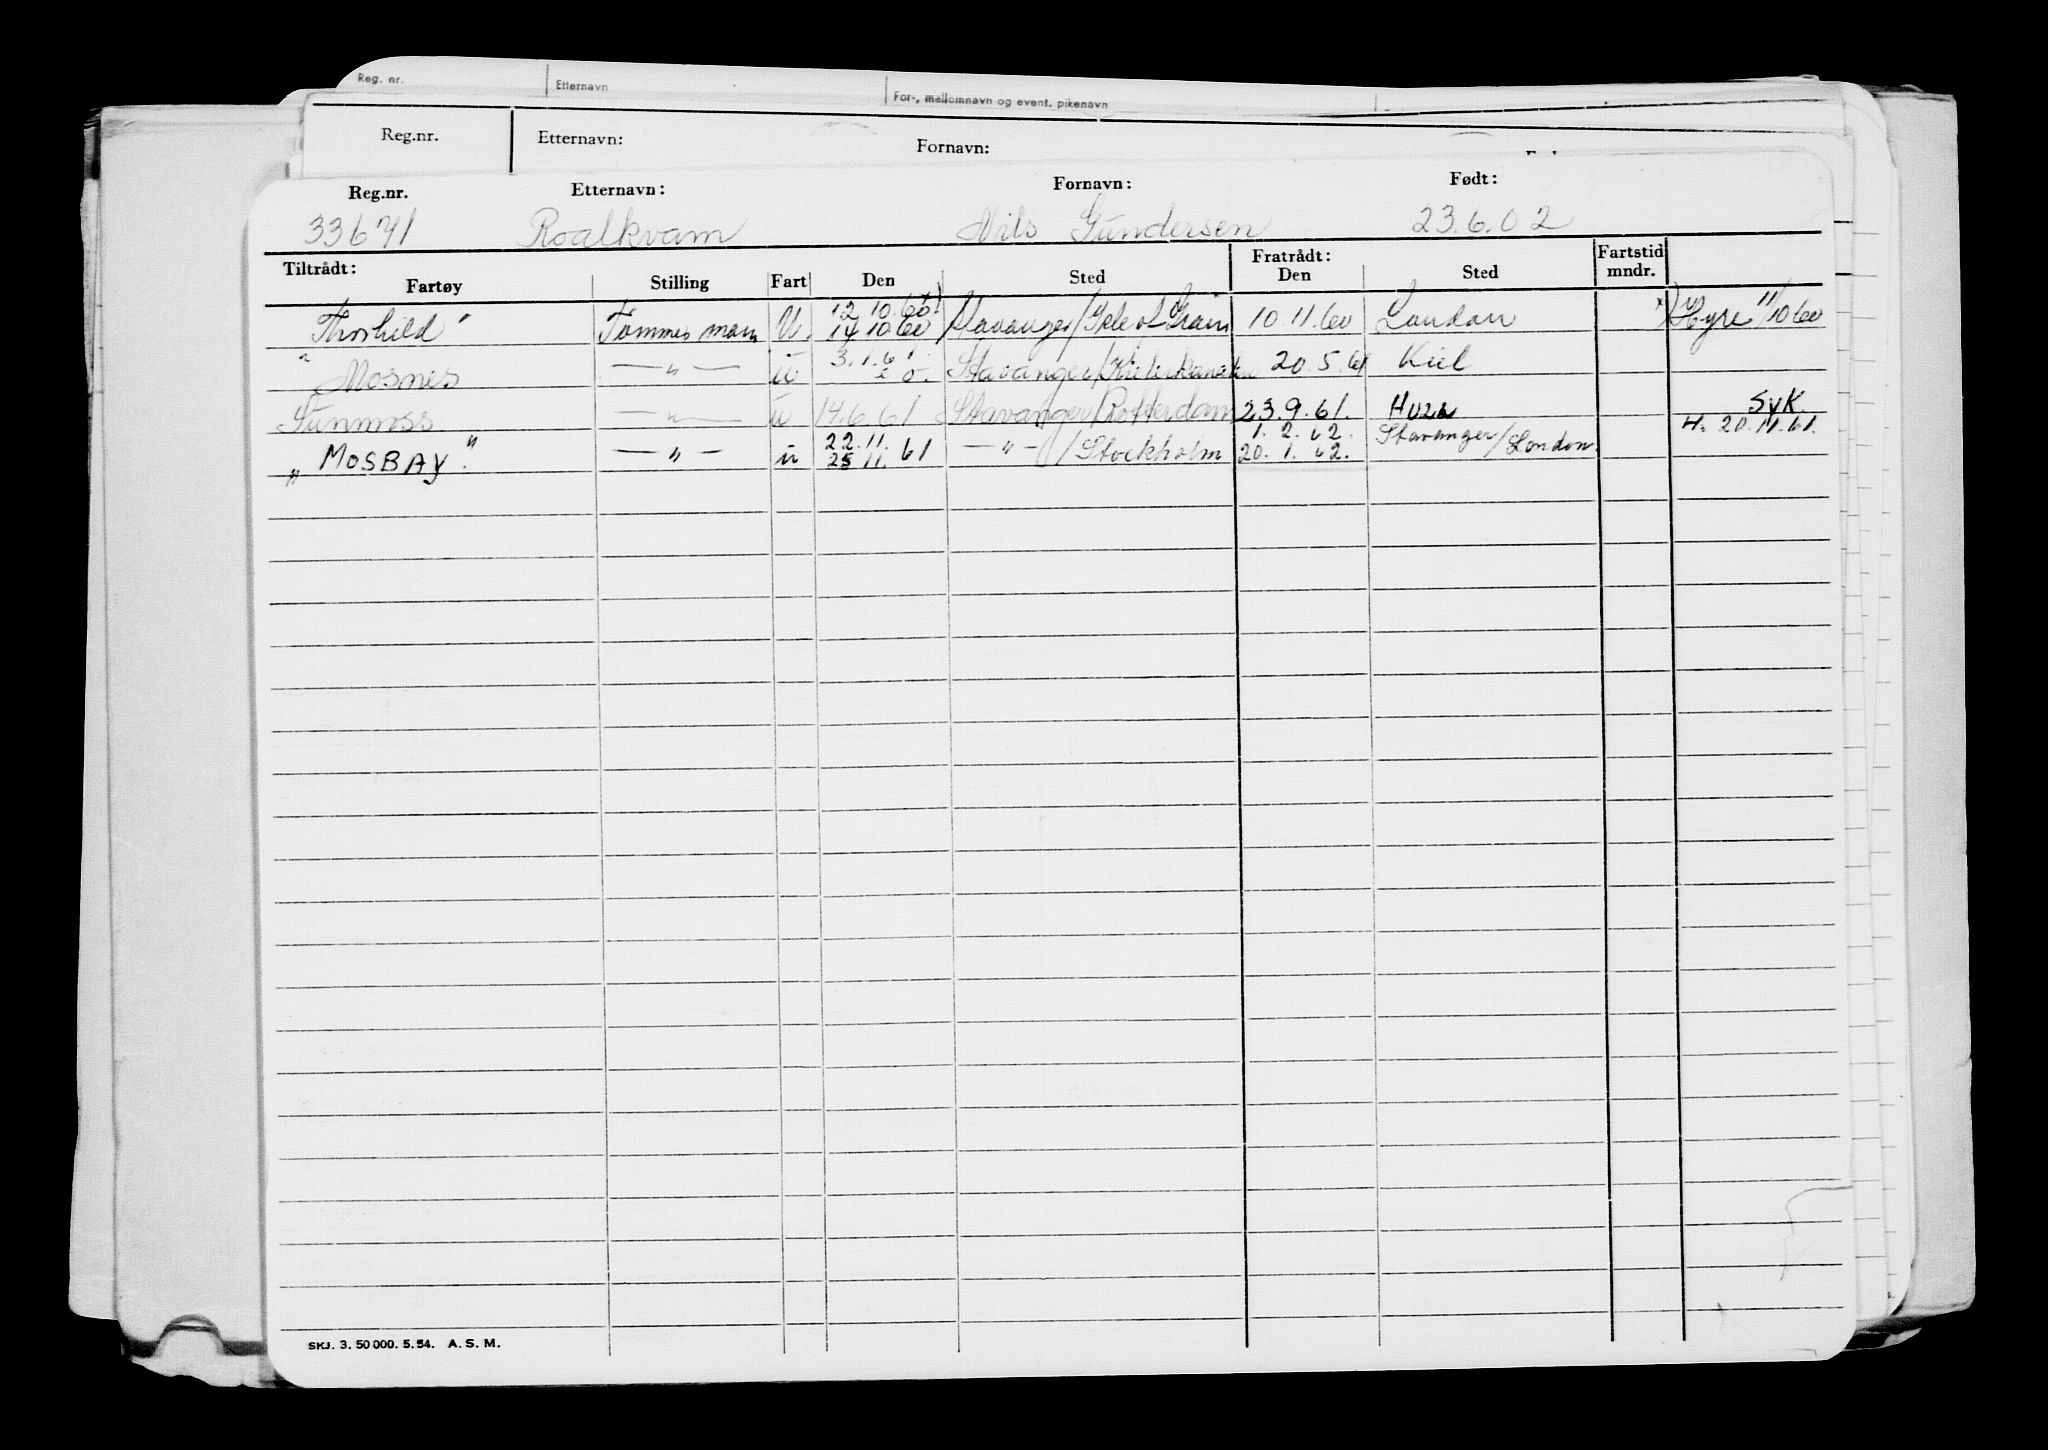 Reg. nr. Etternavn For-, mellomnavn og event. pikenavn
Reg.nr. Etternavn: Fornavn:
Reg.nr. Etternavn: Fornavn: Født:
33671 Roalkvam Nils Gundersen 23.6.02
Tiltrådt: Fratrådt: Fartstid
Fartøy Stilling Fart Den Sted Den Sted mndr.
12 10.60 x)
Thorshild" Tømmermann U. 14 10 60 Stavanger/Isle of Grain 10.11.60 London x) Hyre 11/10 60
3.1.61
" Mosnes — " — u s. d. Stavanger/Kielerkanalen 20.5.61 Kiel
Gunness — " — u 14.6.61 Stavanger/Rotterdam 23.9.61. Hull Syk.
22.11. 1. 2. 62. Stavanger/London. H. 20.11.61.
„ MOSBAY." — " — u 25 11. 61 — " — /Stockholm 20. 1. 62.
SKJ. 3. 50 000. 5. 54. A. S. M.